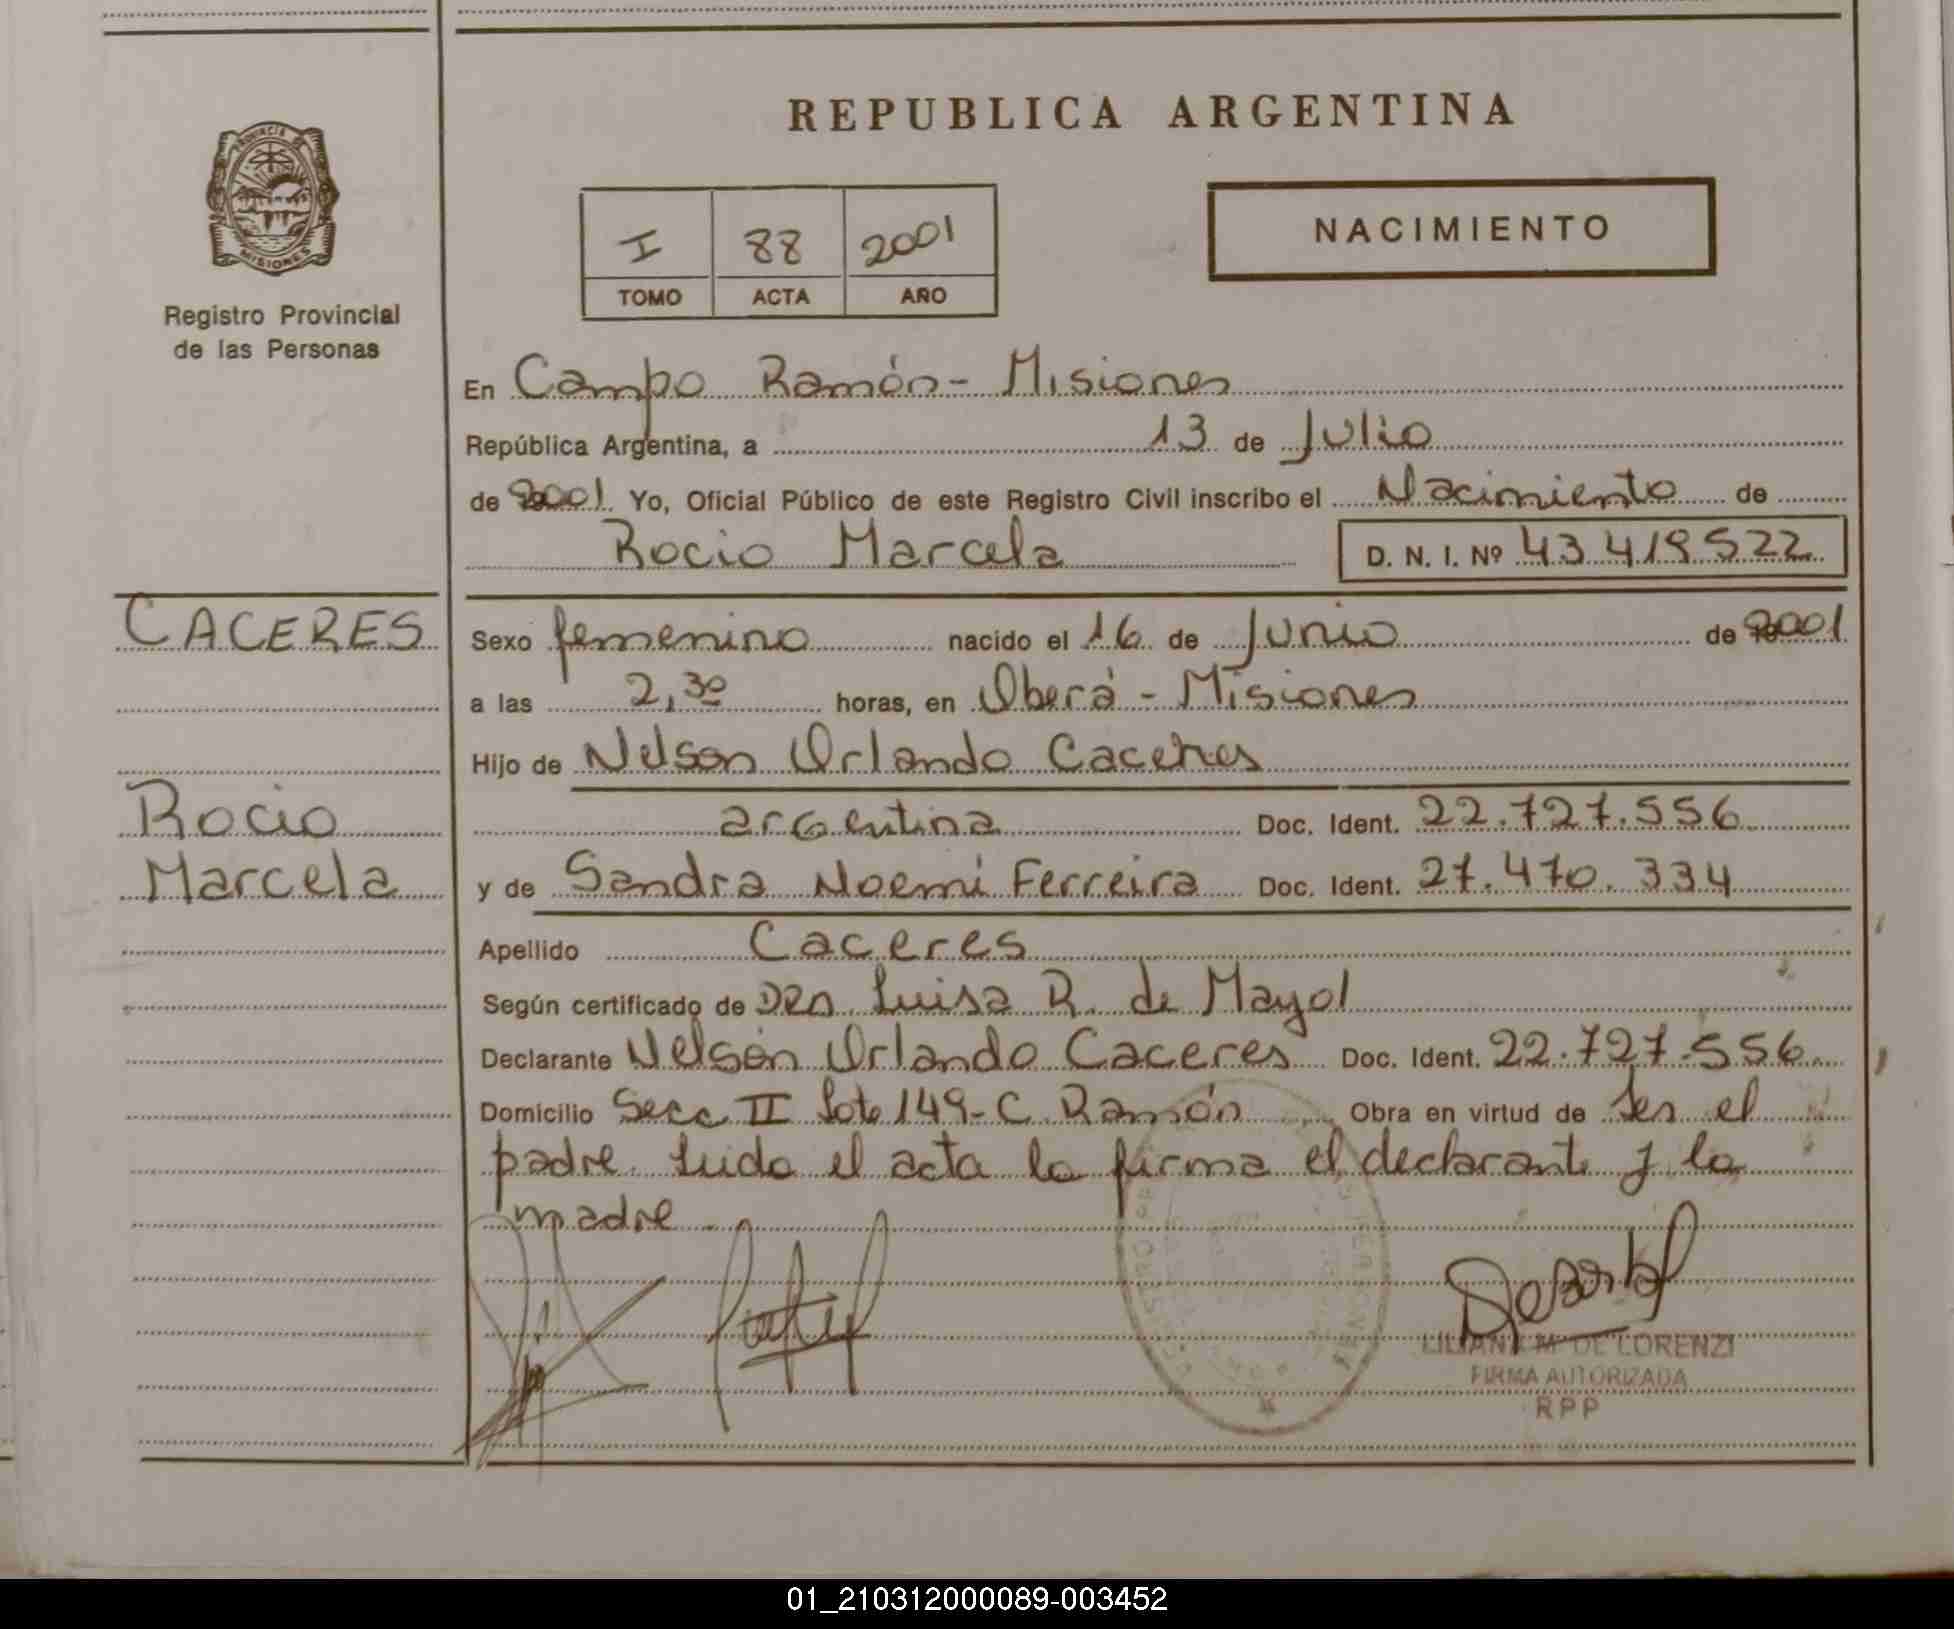 REPUBLICA ARGENTINA
PROVINCIA DE
MISIONES
Registro Provincial
de las Personas
I 88 2001
TOMO ACTA AÑO
NACIMIENTO
En Campo Ramón - Misiones
República Argentina, a 13 de Julio
de 2001 Yo, Oficial Público de este Registro Civil inscribo el Nacimiento de
Rocio Marcela D. N. I. Nº 43.419.522
CACERES
Sexo femenino nacido el 16 de Junio de 2001
a las 2,30 horas, en Oberá - Misiones
Hijo de Nelson Orlando Caceres
Rocio
Marcela
argentina Doc. Ident. 22.727.556
y de Sandra Noemí Ferreira Doc. Ident. 27.470.334
Apellido Caceres
Según certificado de Dra. Luisa R. de Mayol
Declarante Nelson Orlando Caceres Doc. Ident. 22.727.556
Domicilio Secc II Lote 149 - C. Ramón Obra en virtud de Ser el
padre. Leida el acta la firma el declarante y la
madre.
LILIANA M. DE LORENZI
FIRMA AUTORIZADA
RPP
01_210312000089-003452